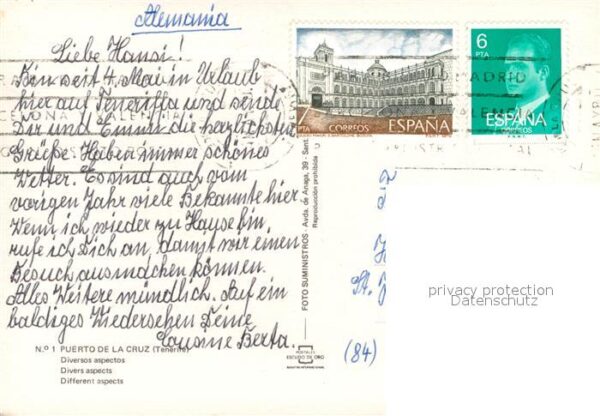 Alemania
Liebe Hansi!
Bin seit 4. Mai in Urlaub
hier auf Teneriffa und sende
Dir und Emmi die herzlichsten
Grüße. Haben immer schönes
Wetter. Es sind auch vom
vorigen Jahr viele Bekannte hier
Wenn ich wieder zu Hause bin,
rufe ich Dich an, damit wir einen
Besuch ausmachen können.
Alles Weitere mündlich. Auf ein
baldiges Wiedersehen Deine
Cousine Berta.
N.º 1 PUERTO DE LA CRUZ (Tenerife)
Diversos aspectos
Divers aspects
Different aspects
FOTO SUMINISTROS - Avda. de Anaga, 39 - Sant
Reproducción prohibida
POSTALES
ESCUDO DE ORO
7
PTA
CORREOS
ESPAÑA
6
PTA
ESPAÑA
CORREOS
MADRID
St.
(84)
privacy protection
Datenschutz